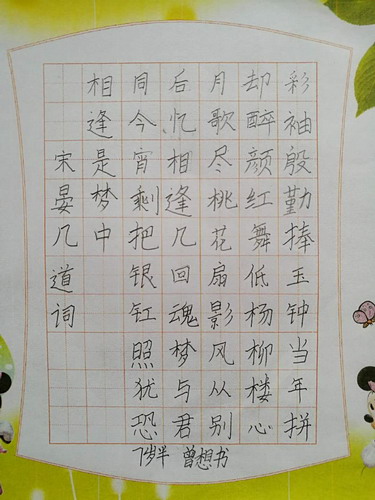 彩袖殷勤捧玉钟当年拼
却醉颜红舞低杨柳楼心
月歌尽桃花扇影风从别
后忆相逢几回魂梦与君
同今宵剩把银缸照犹恐
相逢是梦中
宋晏几道词
7岁半 曾想书